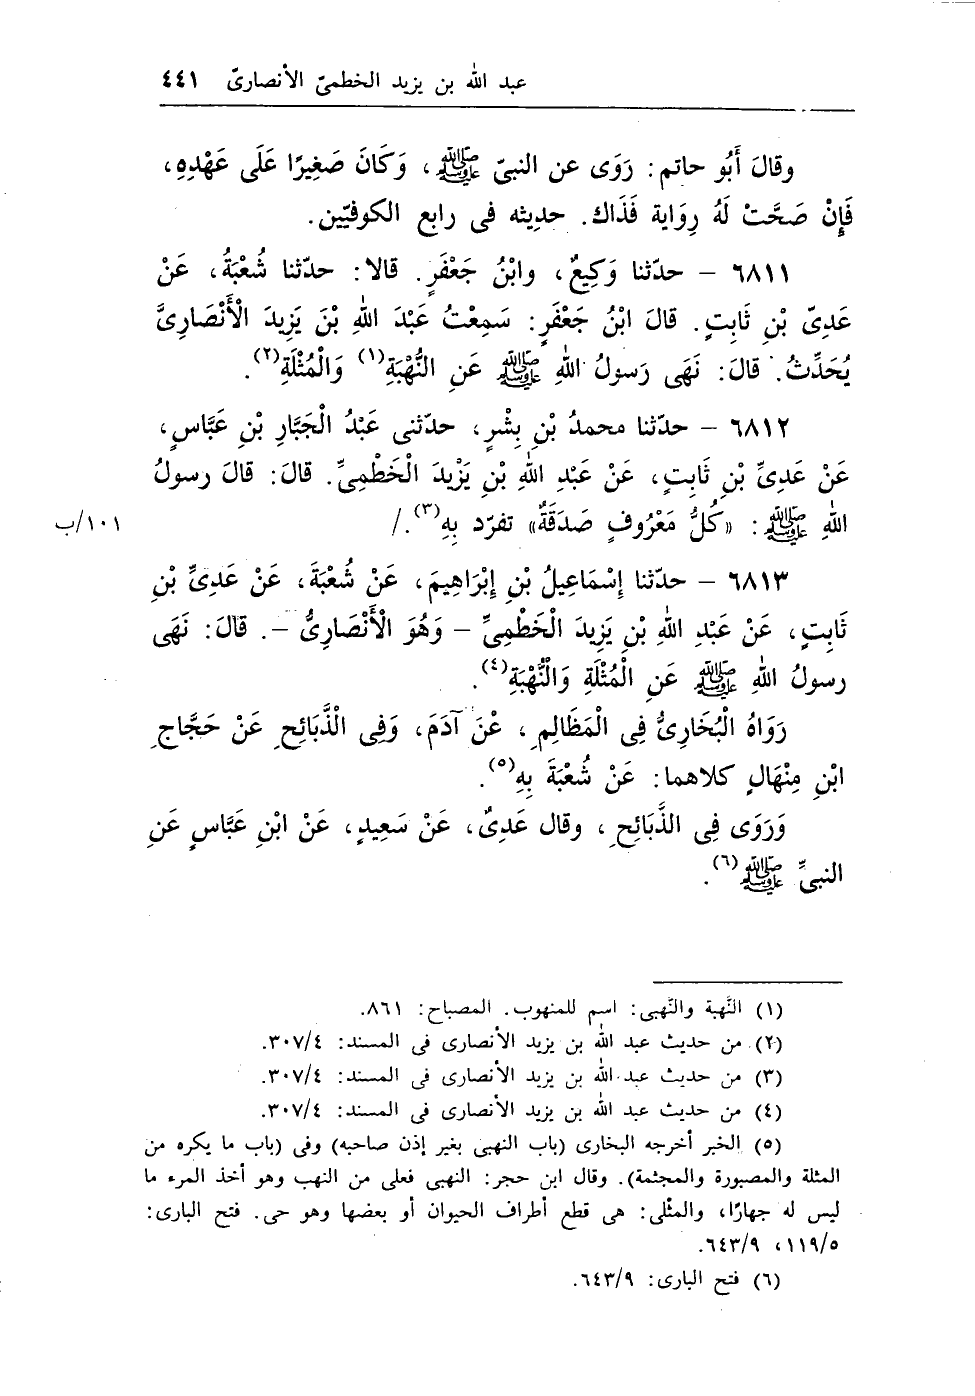 عبد الله بن يزيد الخطمىّ الأنصارىّ ٤٤١
وقالَ أَبُو حاتم: رَوَى عن النبىّ ﷺ، وَكَانَ صَغِيرًا عَلَى عَهْدِهِ،
فَإِنْ صَحَّتْ لَهُ رِوَاية فَذَاكَ. حديثه فى رابع الكوفيّين.
٦٨١١ – حدّثنا وَكِيعٌ، وابْنُ جَعْفَرٍ. قالا: حدّثنا شُعْبَةُ، عَنْ
عَدِىّ بْنِ ثَابِتٍ. قالَ ابْنُ جَعْفَرٍ: سَمِعْتُ عَبْدَ اللهِ بْنَ يَزِيدَ الْأَنْصَارِىَّ
يُحَدِّثُ. قالَ: نَهَى رَسولُ اللهِ ﷺ عَنِ النُّهْبَةِ(١) وَالْمُثْلَةِ(٢).
٦٨١٢ – حدّثنا محمدُ بْنِ بِشْرٍ، حدّثنى عَبْدُ الْجَبَّارِ بْنِ عَبَّاسٍ،
عَنْ عَدِىِّ بْنِ ثَابِتٍ، عَنْ عَبْدِ اللهِ بْنِ يَزْيدَ الْخَطْمِىِّ. قالَ: قالَ رسولُ
اللهِ ﷺ: «كُلُّ مَعْرُوفٍ صَدَقَةٌ» تفرّد بِهِ(٣)./ ١٠١/ب
٦٨١٣ – حدّثنا إِسْمَاعِيلُ بْنِ إِبْرَاهِيمَ، عَنْ شُعْبَةَ، عَنْ عَدِىِّ بْنِ
ثَابِتٍ، عَنْ عَبْدِ اللهِ بْنِ يَزِيدَ الْخَطْمِىِّ – وَهُوَ الْأَنْصَارِىُّ –. قالَ: نَهَى
رسولُ اللهِ ﷺ عَنِ الْمُثْلَةِ وَالنُّهْبَةِ(٤).
رَوَاهُ الْبُخَارِىُّ فِى الْمَظَالِمِ، عْنَ آدَمَ، وَفِى الذَّبَائِحِ عَنْ حَجَّاجِ
ابْنِ مِنْهَالٍ كلاهما: عَنْ شُعْبَةَ بِهِ(٥).
وَرَوَى فِى الذَّبَائِحِ، وقال عَدِىٌ، عَنْ سَعِيدٍ، عَنْ ابْنِ عَبَّاسٍ عَنِ
النبىِّ ﷺ(٦).
(١) النَّهبة والنَّهبى: اسم للمنهوب. المصباح: ٨٦١.
(٢) من حديث عبد الله بن يزيد الأنصارى فى المسند: ٣٠٧/٤.
(٣) من حديث عبد الله بن يزيد الأنصارى فى المسند: ٣٠٧/٤.
(٤) من حديث عبد الله بن يزيد الأنصارى فى المسند: ٣٠٧/٤.
(٥) الخبر أخرجه البخارى (باب النهبى بغير إذن صاحبه) وفى (باب ما يكره من
المثلة والمصبورة والمجثمة). وقال ابن حجر: النهبى فعلى من النهب وهو أخذ المرء ما
ليس له جهارًا، والمثْلى: هى قطع أطراف الحيوان أو بعضها وهو حى. فتح البارى:
١١٩/٥، ٦٤٣/٩.
(٦) فتح البارى: ٦٤٣/٩.